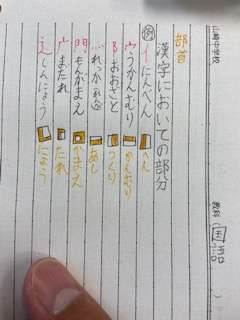 山崎中学校
教科（国語）
部首
漢字においての部分
例 イ にんべん へん
ウ うかんむり かんむり
阝 おおざと つくり
灬 れっか（れんが） あし
門 もんがまえ かまえ
广 まだれ たれ
辶 しんにょう にょう